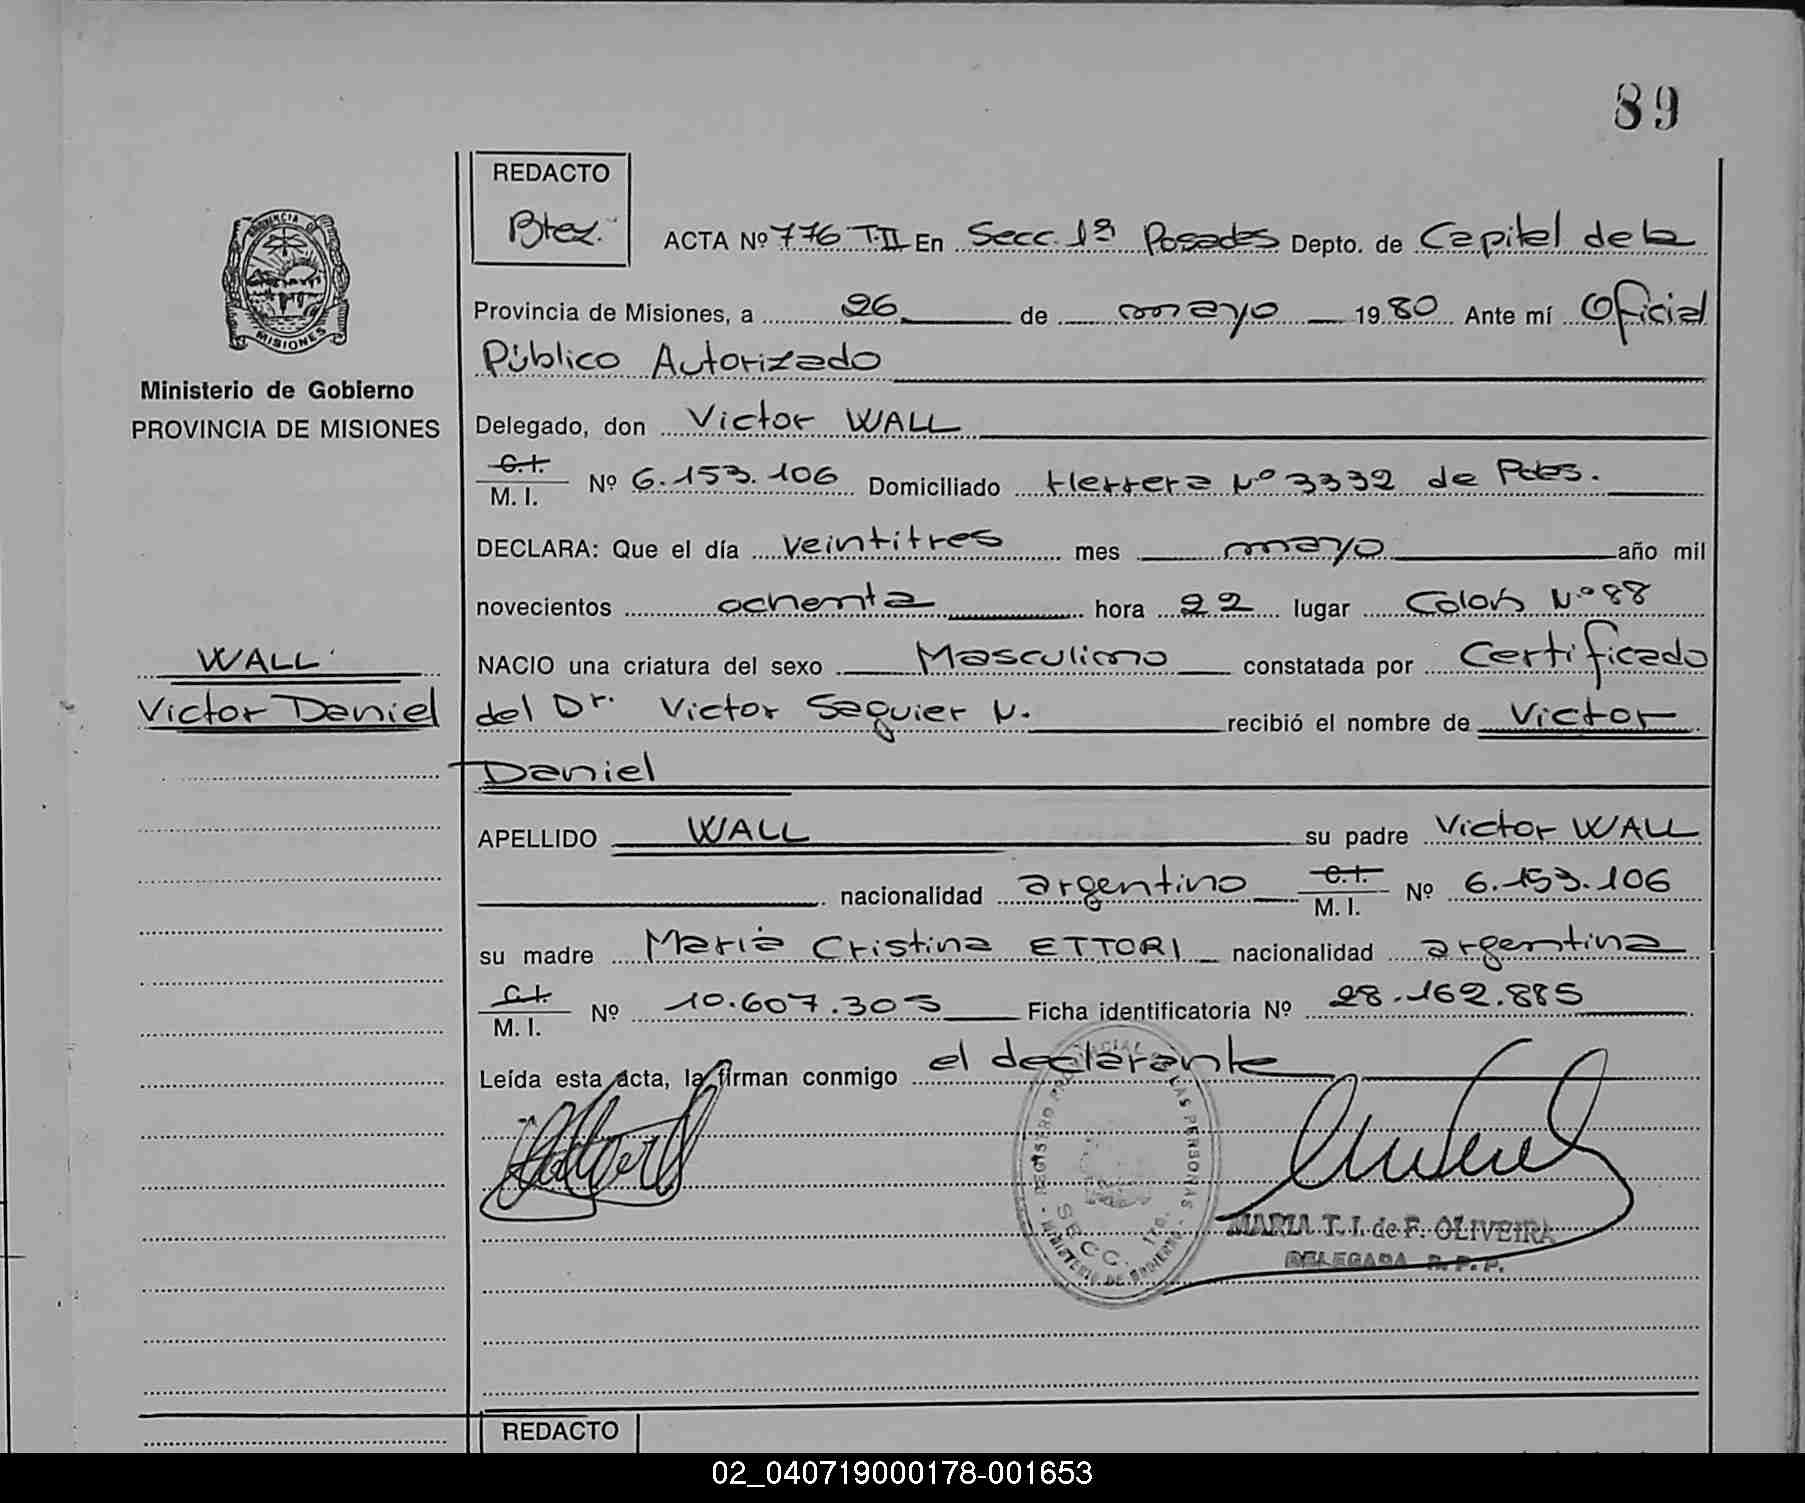 89
REDACTO
Btez.
ACTA Nº 776 T.II En Secc. 1ª Posadas Depto. de Capital de la
Provincia de Misiones, a 26 de mayo 1980 Ante mí Oficial
Público Autorizado
Delegado, don Victor WALL
C.I. M. I. Nº 6.153.106 Domiciliado Herrera Nº 3332 de Pdas.
DECLARA: Que el día veintitres mes mayo año mil
novecientos ochenta hora 22 lugar Colón Nº 88
NACIO una criatura del sexo Masculino constatada por Certificado
del Dr. Victor Saguier N. recibió el nombre de Victor
Daniel
APELLIDO WALL su padre Victor WALL
nacionalidad argentino C.I. M. I. Nº 6.153.106
su madre María Cristina ETTORI nacionalidad argentina
C.I. M. I. Nº 10.607.305 Ficha identificatoria Nº 28.162.885
Leída esta acta, la firman conmigo el declarante
PROVINCIA DE
MISIONES
Ministerio de Gobierno
PROVINCIA DE MISIONES
WALL
Victor Daniel
REGISTRO LAS PERSONAS
SECC. 1ra.
MINISTERIO DE GOBIERNO
MARIA T. I. de F. OLIVEIRA
DELEGADA R. P. P.
REDACTO
02_040719000178-001653